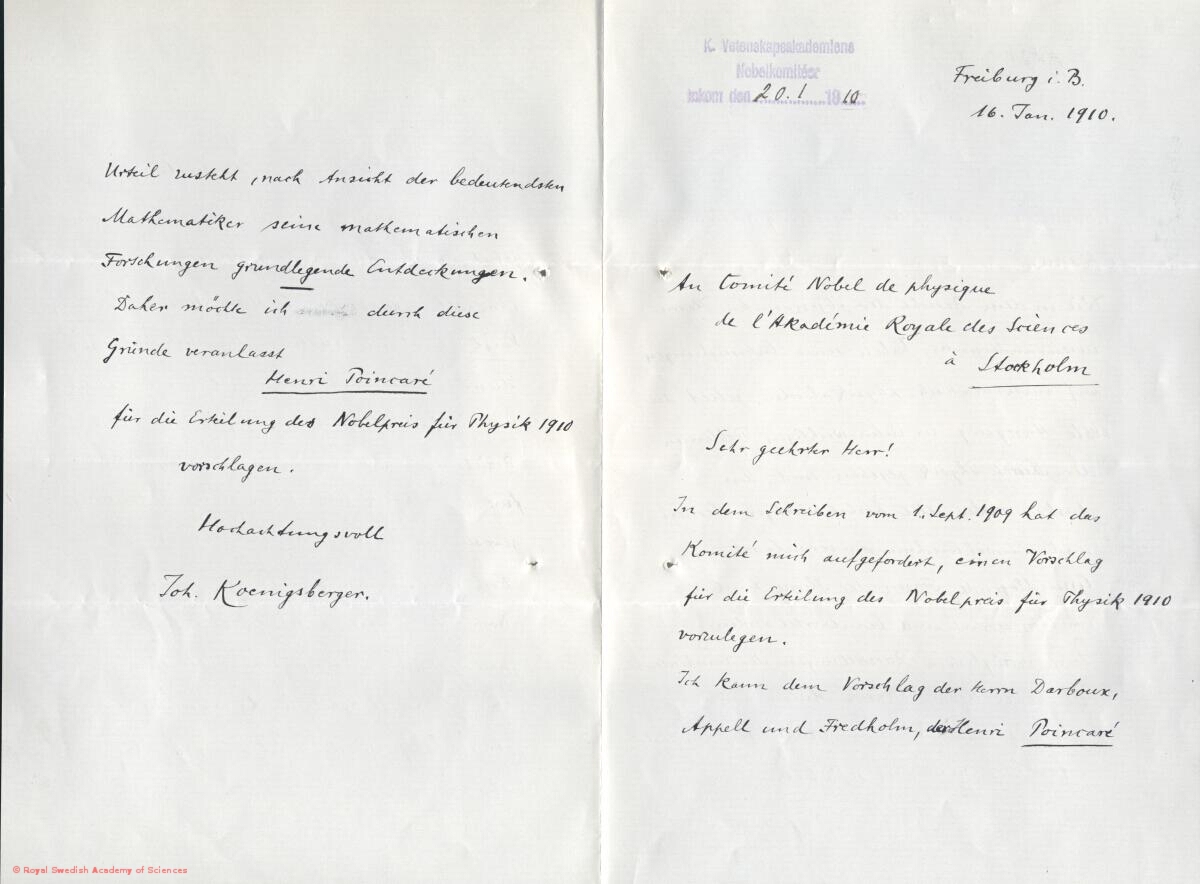 K. Vetenskapsakademiens
Nobelkomitéer
Inkom den 20.1 1910.
Freiburg i. B.
16. Jan. 1910.
An Comité Nobel de physique
de l'Akadémie Royale des Sciences
à Stockholm
Sehr geehrter Herr!
In dem Schreiben vom 1. Sept. 1909 hat das
Komité mich aufgefordert, einen Vorschlag
für die Erteilung des Nobelpreis für Physik 1910
vorzulegen.
Ich kann dem Vorschlag der Herrn Darboux,
Appell und Fredholm, der Henri Poincaré
Urteil zusteht, nach Ansicht der bedeutendsten
Mathematiker seine mathematischen
Forschungen grundlegende Entdeckungen.
Daher möchte ich durch diese
Gründe veranlasst
Henri Poincaré
für die Erteilung des Nobelpreis für Physik 1910
vorschlagen.
Hochachtungsvoll
Joh. Koenigsberger.
© Royal Swedish Academy of Sciences